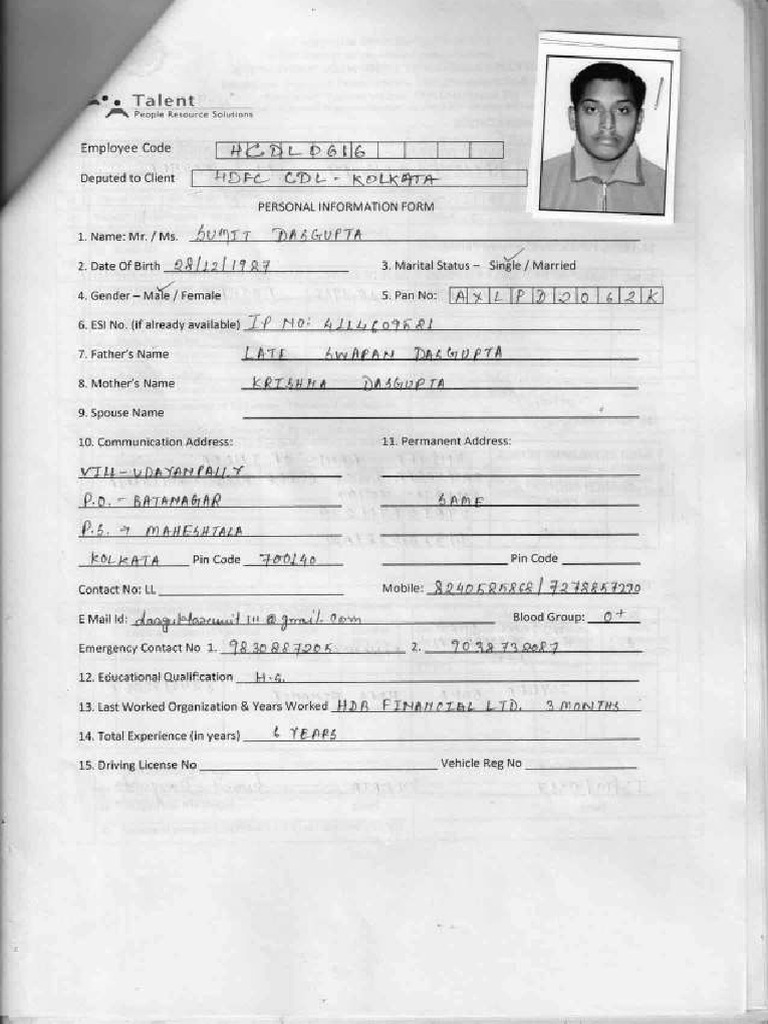 Talent
People Resource Solutions
Employee Code HCDLDG16
Deputed to Client HDFC CDL - KOLKATA
PERSONAL INFORMATION FORM
1. Name: Mr. / Ms. SUMIT DASGUPTA
2. Date Of Birth 28/12/1987 3. Marital Status – Single / Married
4. Gender – Male / Female 5. Pan No: AXLPD2062K
6. ESI No. (if already available) IP NO: 4114609581
7. Father's Name LATE SWAPAN DASGUPTA
8. Mother's Name KRISHNA DASGUPTA
9. Spouse Name
10. Communication Address: 11. Permanent Address:
VILL-UDAYANPALLY
P.O. - BATANAGAR SAME
P.S. MAHESHTALA
KOLKATA Pin Code 700140 Pin Code
Contact No: LL Mobile: 8240585868/7278857270
E Mail Id: @gmail.com Blood Group: O+
Emergency Contact No 1. 9830887205 2. 9038738087
12. Educational Qualification H.S.
13. Last Worked Organization & Years Worked HDB FINANCIAL LTD. 3 MONTHS
14. Total Experience (in years) 6 YEARS
15. Driving License No Vehicle Reg No